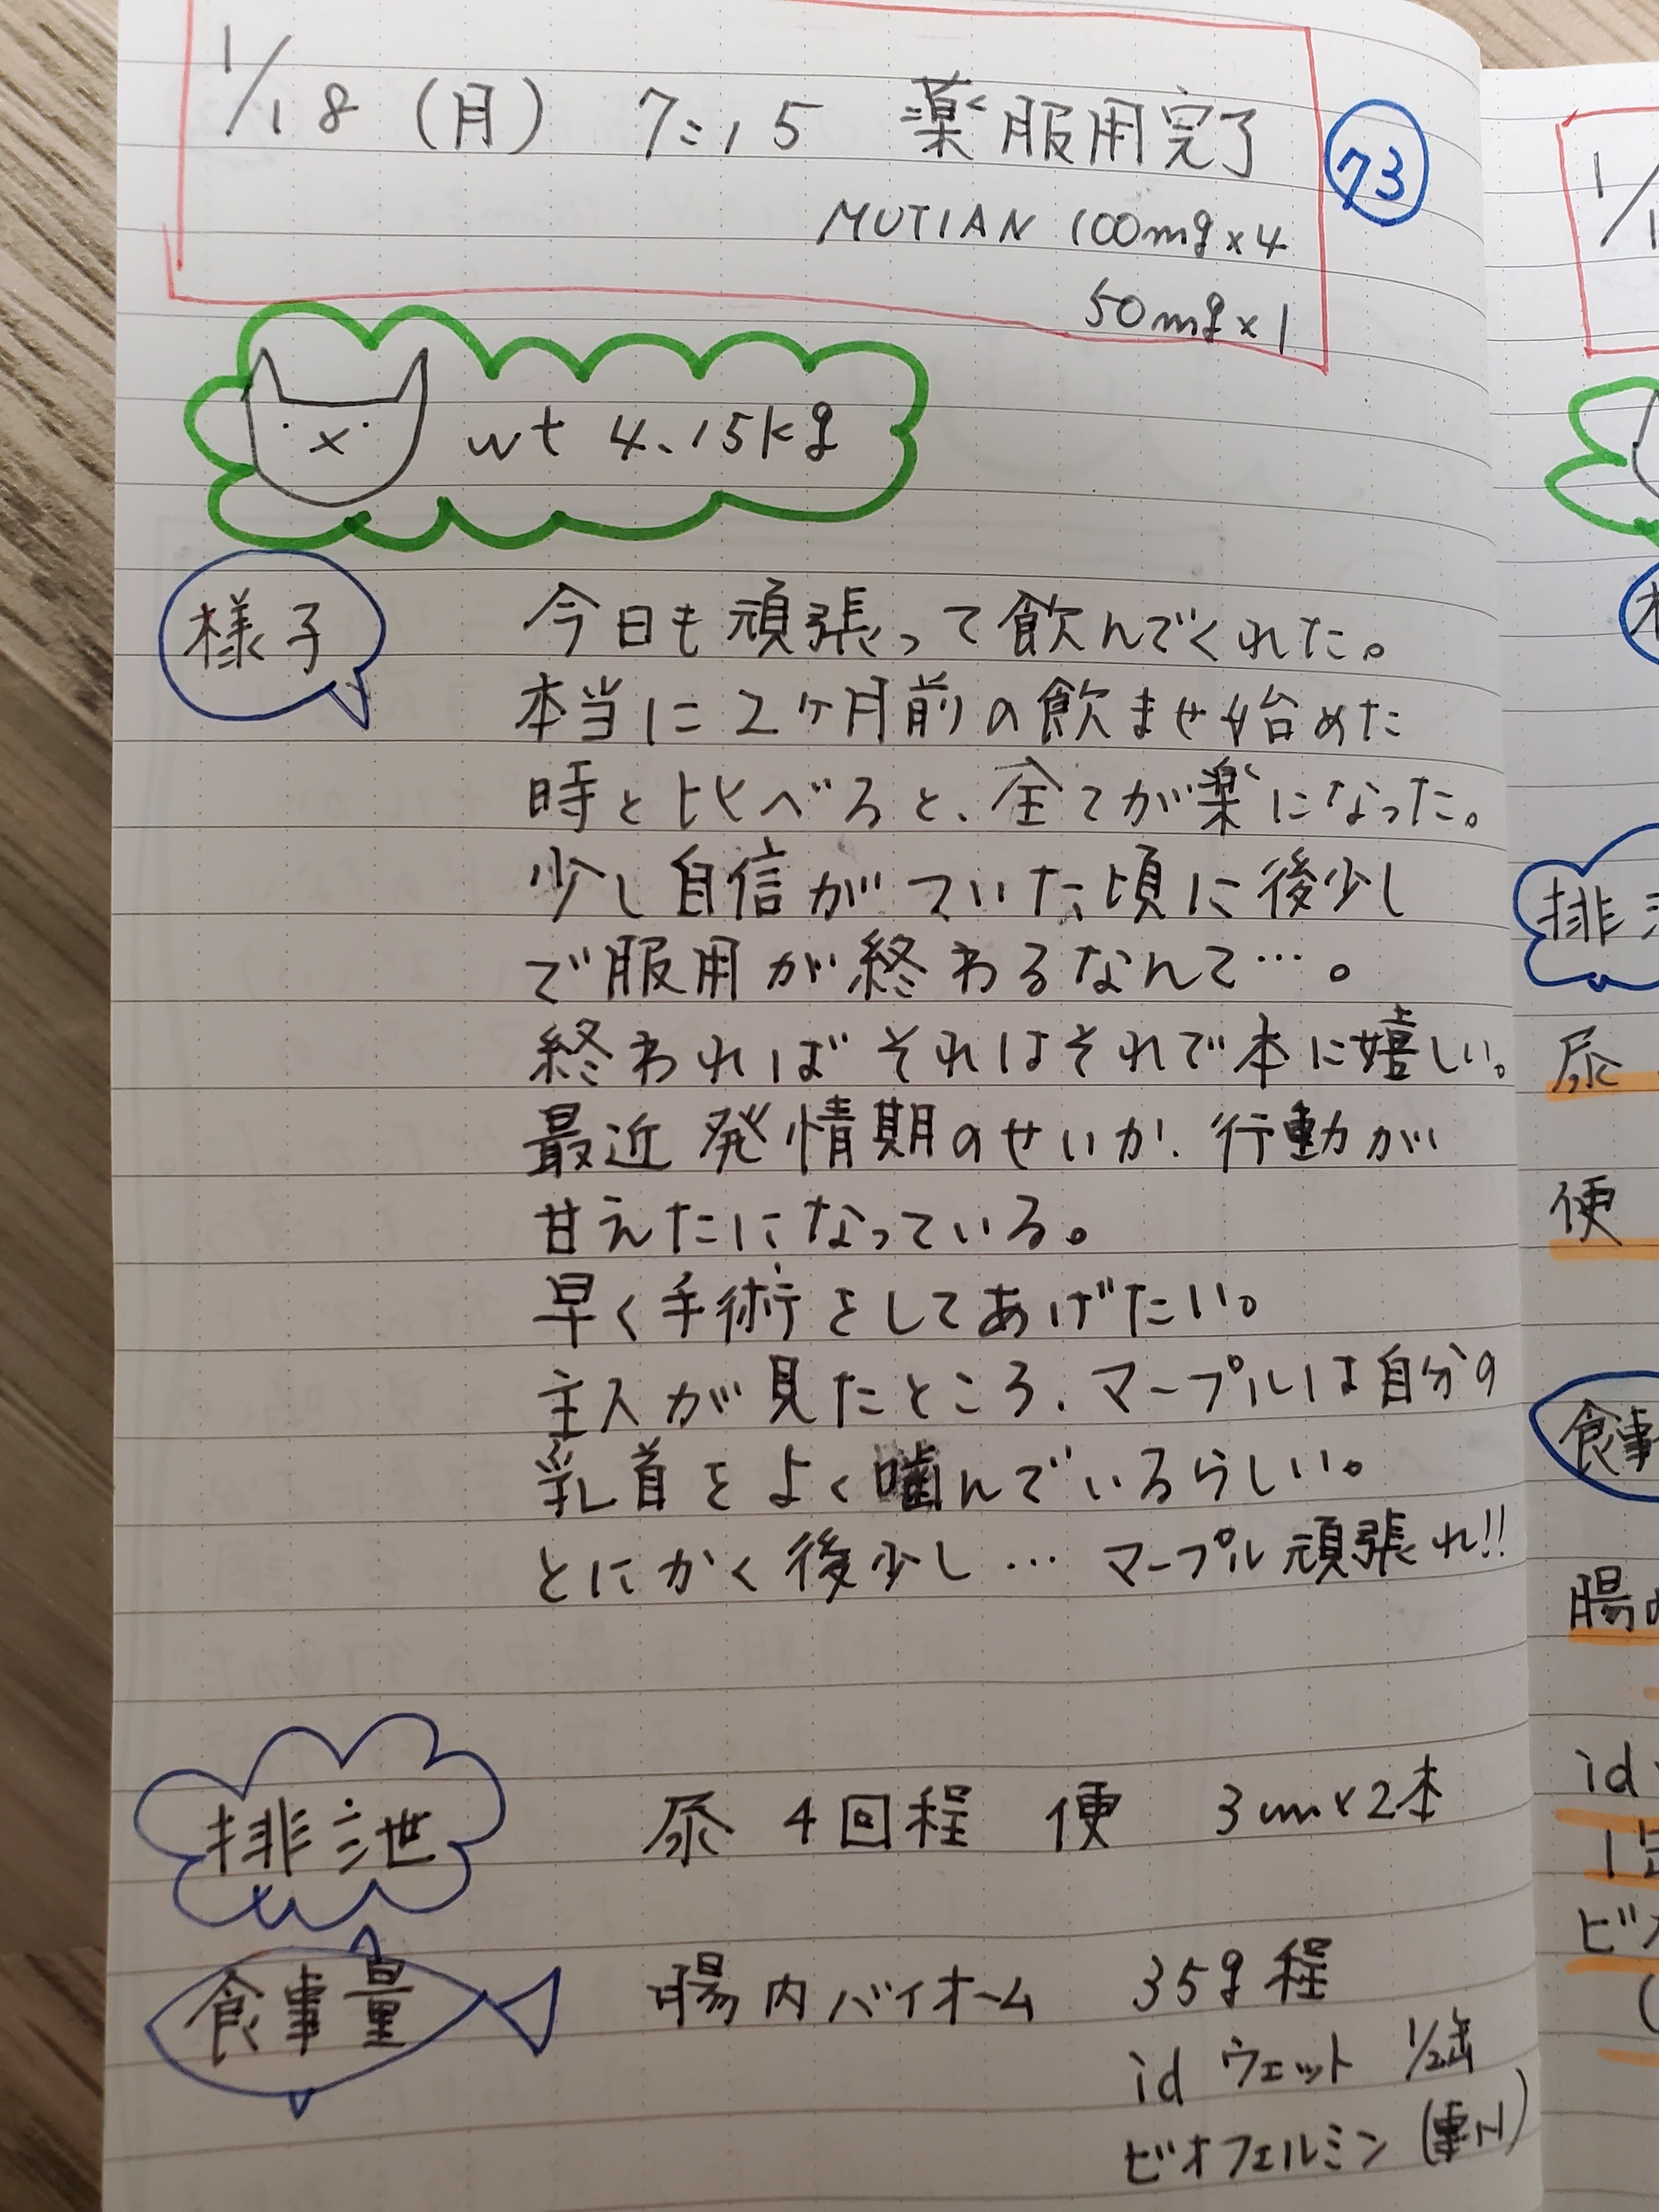 1/18 (月) 7:15 薬服用完了
73
MUTIAN 100mg×4
50mg×1
wt 4.15kg
様子
今日も頑張って飲んでくれた。
本当に2ヶ月前の飲ませ始めた
時と比べると、全てが楽になった。
少し自信がついた頃に後少し
で服用が終わるなんて…。
終わればそれはそれで本に嬉しい。
最近発情期のせいか、行動が
甘えたになっている。
早く手術をしてあげたい。
主人が見たところ、マープルは自分の
乳首をよく噛んでいるらしい。
とにかく後少し… マープル頑張れ!!
排泄
尿 4回程 便 3cm×2本
食事量
腸内バイオーム 35g程
id ウェット 1/2缶
ビオフェルミン
1/1
排
尿
便
食事
腸
id
1
ビオ
(